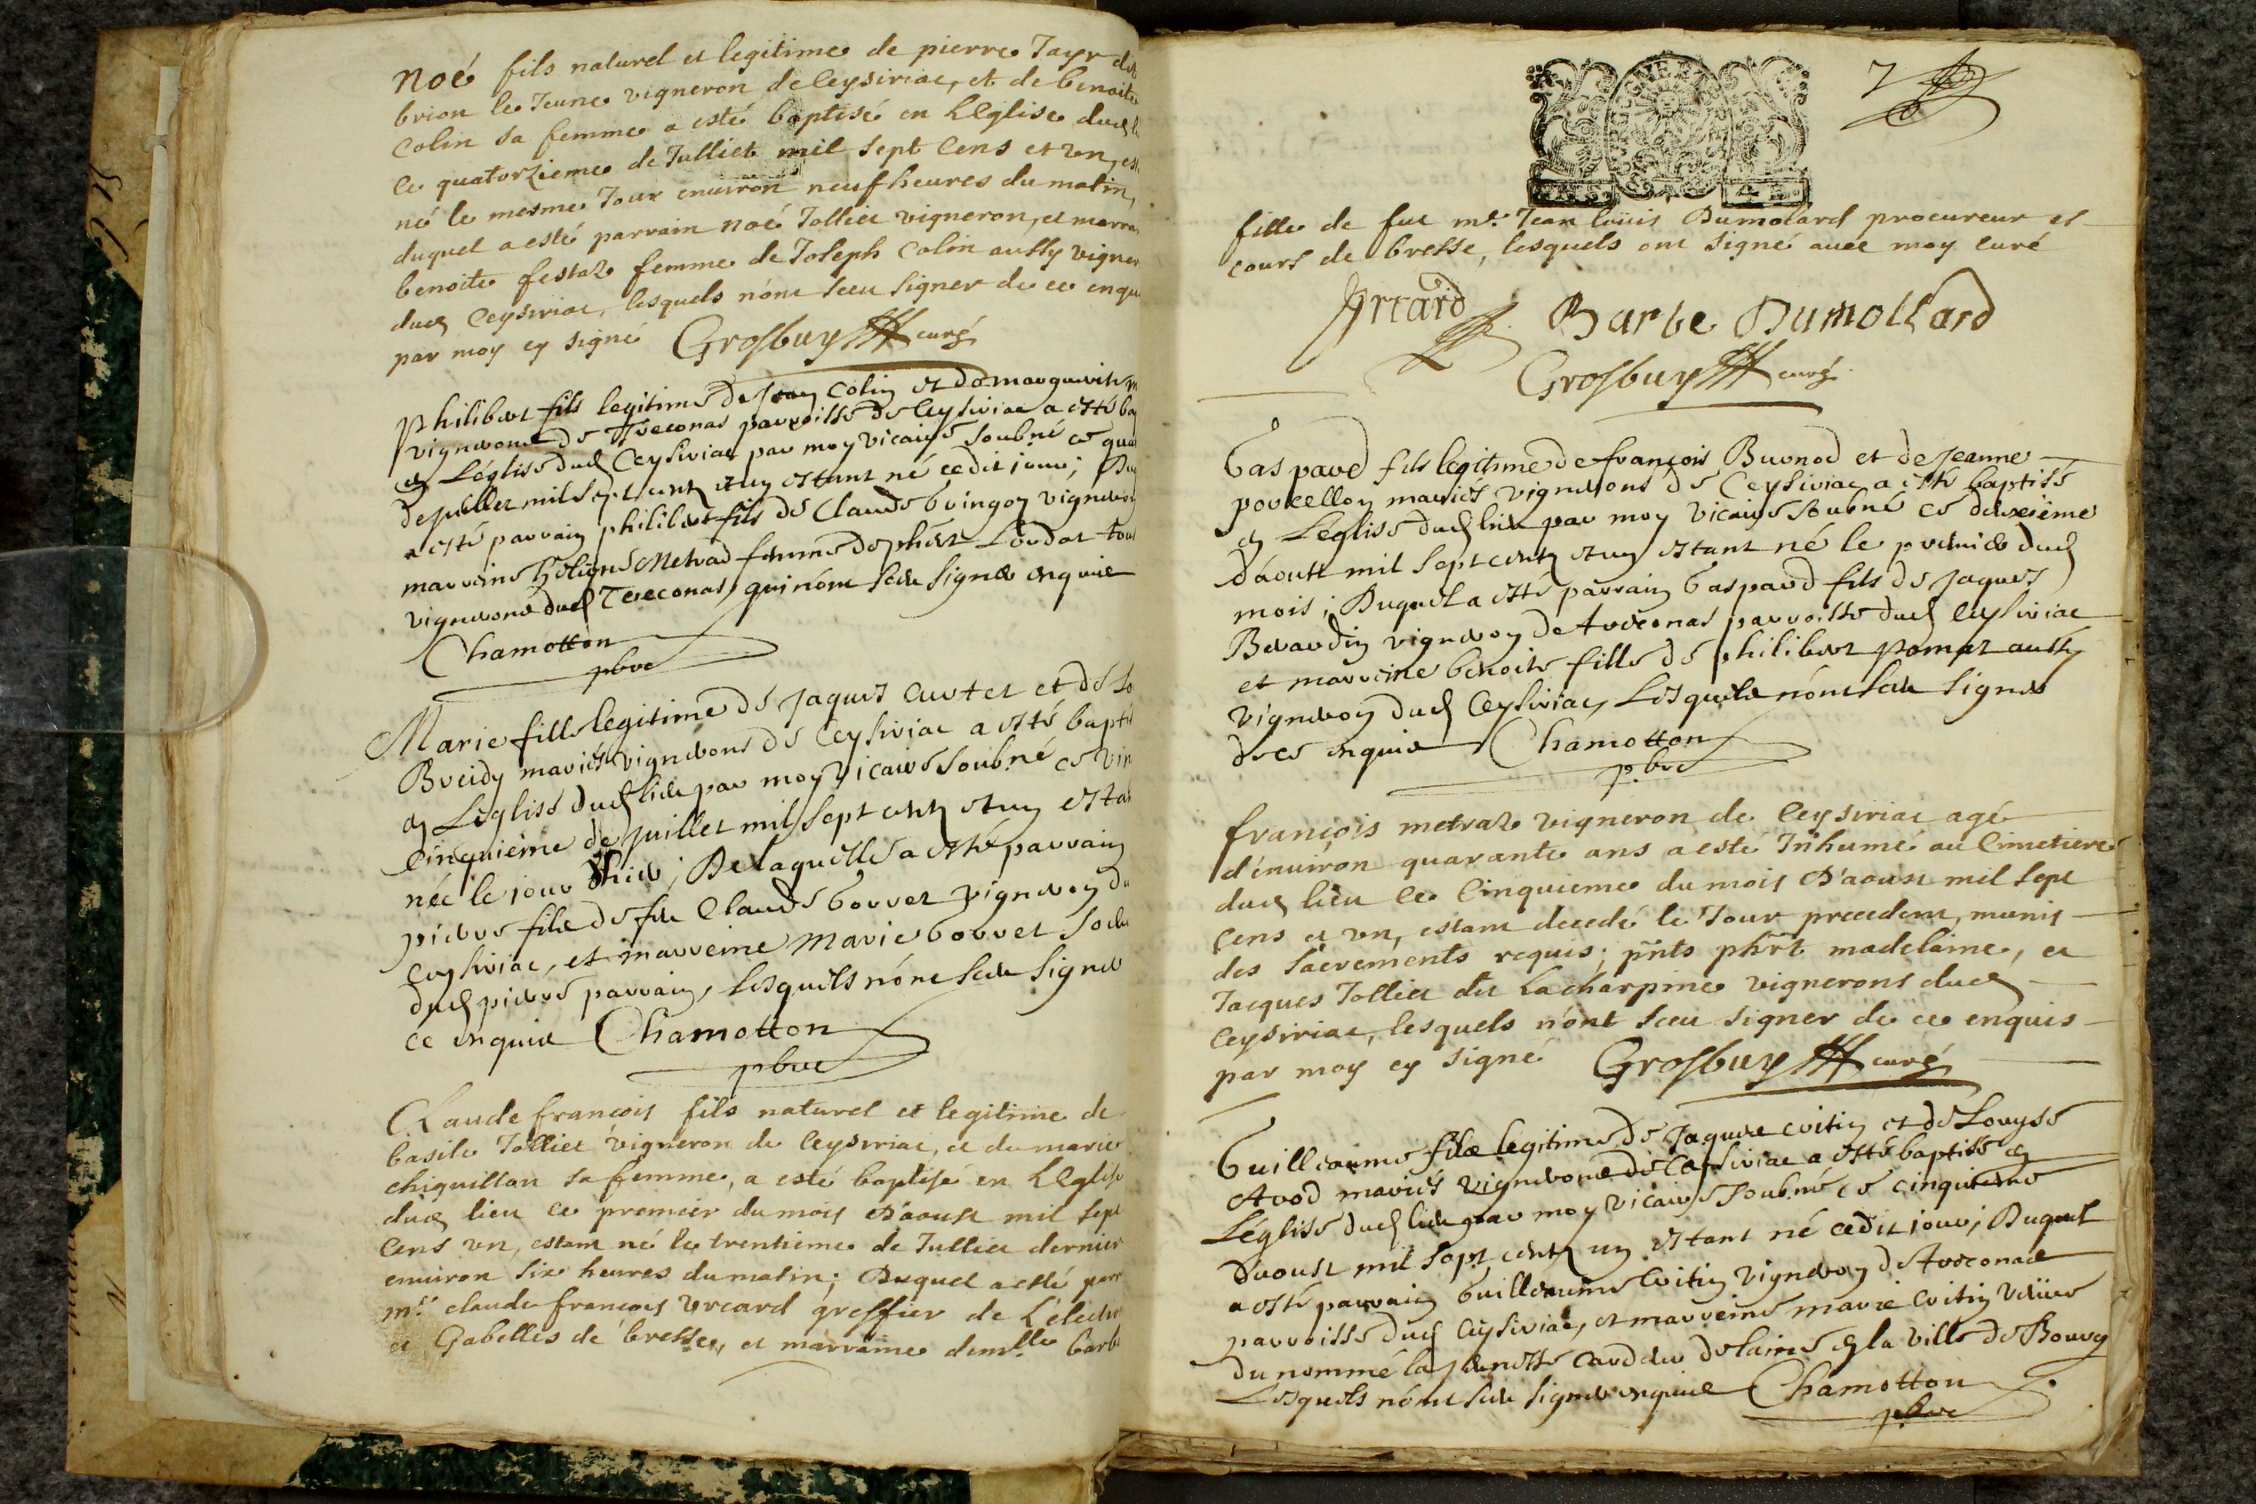 Noé fils naturel et legitime de pierre Tayr dit
brion le Jeune vigneron de Ceysiriac, et de benoite
Colin sa femme a esté baptisé en LEglise dud
ce quatorzieme de Julliet mil sept Cens et un, est
né le mesme Jour environ neuf heures du matin,
duquel a esté parrain noé Jolliet vigneron, et marra
benoite festaz femme de Joseph Colin aussy vigner
dud Ceysiriac, lesquels n'ont sceu signer de ce enqu
par moy cy signé Grosbuy curé
Philibert fils legitime de Jean Colin et de marguerite
vignerons de Treconas parroisse de Ceysiriac a esté bap
en Léglise dud Ceysiriac par moy vicaire soubné ce qua
de juillet mil sept cents et un estant né cedit jour; Duq
a esté parrain philibert fils de Claude Gringoz vigneron
marreine Metrad femme de phert Loudot tous
vignerons dud Treconas, qui n'ont sceu signer enquis
Chamotton
pbre
Marie fille legitime de Jaques Curtet et de
Breidy mariés vignerons de Ceysiriac a esté bapti
en Léglise dud lieu par moy vicaire soubné ce vin
cinquième de juillet mil sept cents et un estan
née le jour d'hier; De laquelle a esté parrain
pierre fils de feu Claude Gorret vigneron du
Ceysiriac, et marreine Marie Gorret soeur
dud pierre parrain, Lesquels n'ont sceu signer
ce enquis Chamotton
pbre
Claude françois fils naturel et legitime de
basile Jolliet vigneron de Ceysiriac, et de marie
chiquillon sa femme, a esté baptisé en LEglise
dud lieu ce premier du mois d'aoust mil sept
Cens un, estant né le trentieme de Julliet dernier
environ six heures du matin; Duquel a esté parr
mre claude françois Urcard greffier de L'électi
et Gabelles de bresse, et marraine demlle barb
7
fille de fut me. Jean louis Dumolard procureur es
cours de bresse, lesquels ont signé avec moy curé
Urcard Barbe Dumollard
Grosbuy curé
Gaspard fils legitime de françois Burnod et de Jeanne
porcellon mariés vignerons de Ceysiriac a esté baptisé
en Léglise dud lieu par moy vicaire soubné ce deuxième
d'aoust mil sept cents et un estant né le premier dud
mois; Duquel a esté parrain Gaspard fils de Jaques
Berardin vigneron de Treconas parroisse dud Ceysiriac
et marreine benoite fille de philibert pomat aussy
vigneron dud Ceysiriac, Lesquels n'ont sceu signer
de ce enquis Chamotton
pbre
françois metraz vigneron de Ceysiriac agé
d'environ quarante ans a esté Inhumé au Cimetiere
dud lieu ce Cinquieme du mois d'aoust mil sept
Cens et un, estant decedé le Jour precedent, munis
des sacrements requis; pñts phrt madelaine, et
Jacques Jolliet dit Lacharpine vignerons dud
Ceysiriac, lesquels n'ont sceu signer de ce enquis
par moy cy signé Grosbuy curé
Guillaume fils legitime de Jaques Coitin et de Louyse
Avod mariés vignerons de Ceysiriac a esté baptisé en
Léglise dud lieu par moy vicaire soubné ce cinquieme
d'aoust mil sept cents un estant né cedit jour; Duquel
a esté parrain Guillaume Coitin vigneron de Treconas
parroisse dud Ceysiriac, et marreine marie Coitin veuve
du nommé la cardeur de laine en la ville de Bourg
Lesquels n'ont sceu signer enquis Chamotton
pbre